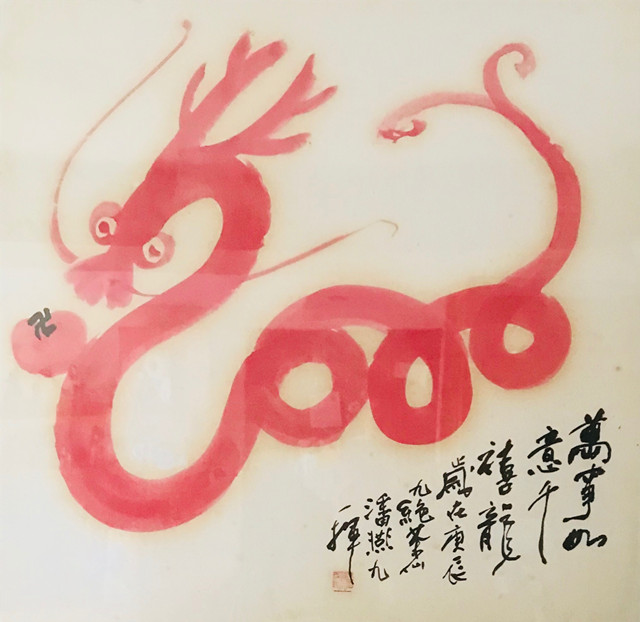 卍
萬事如
意千
禧龍
歲在庚辰
九絶茶仙
潘燕九
一揮